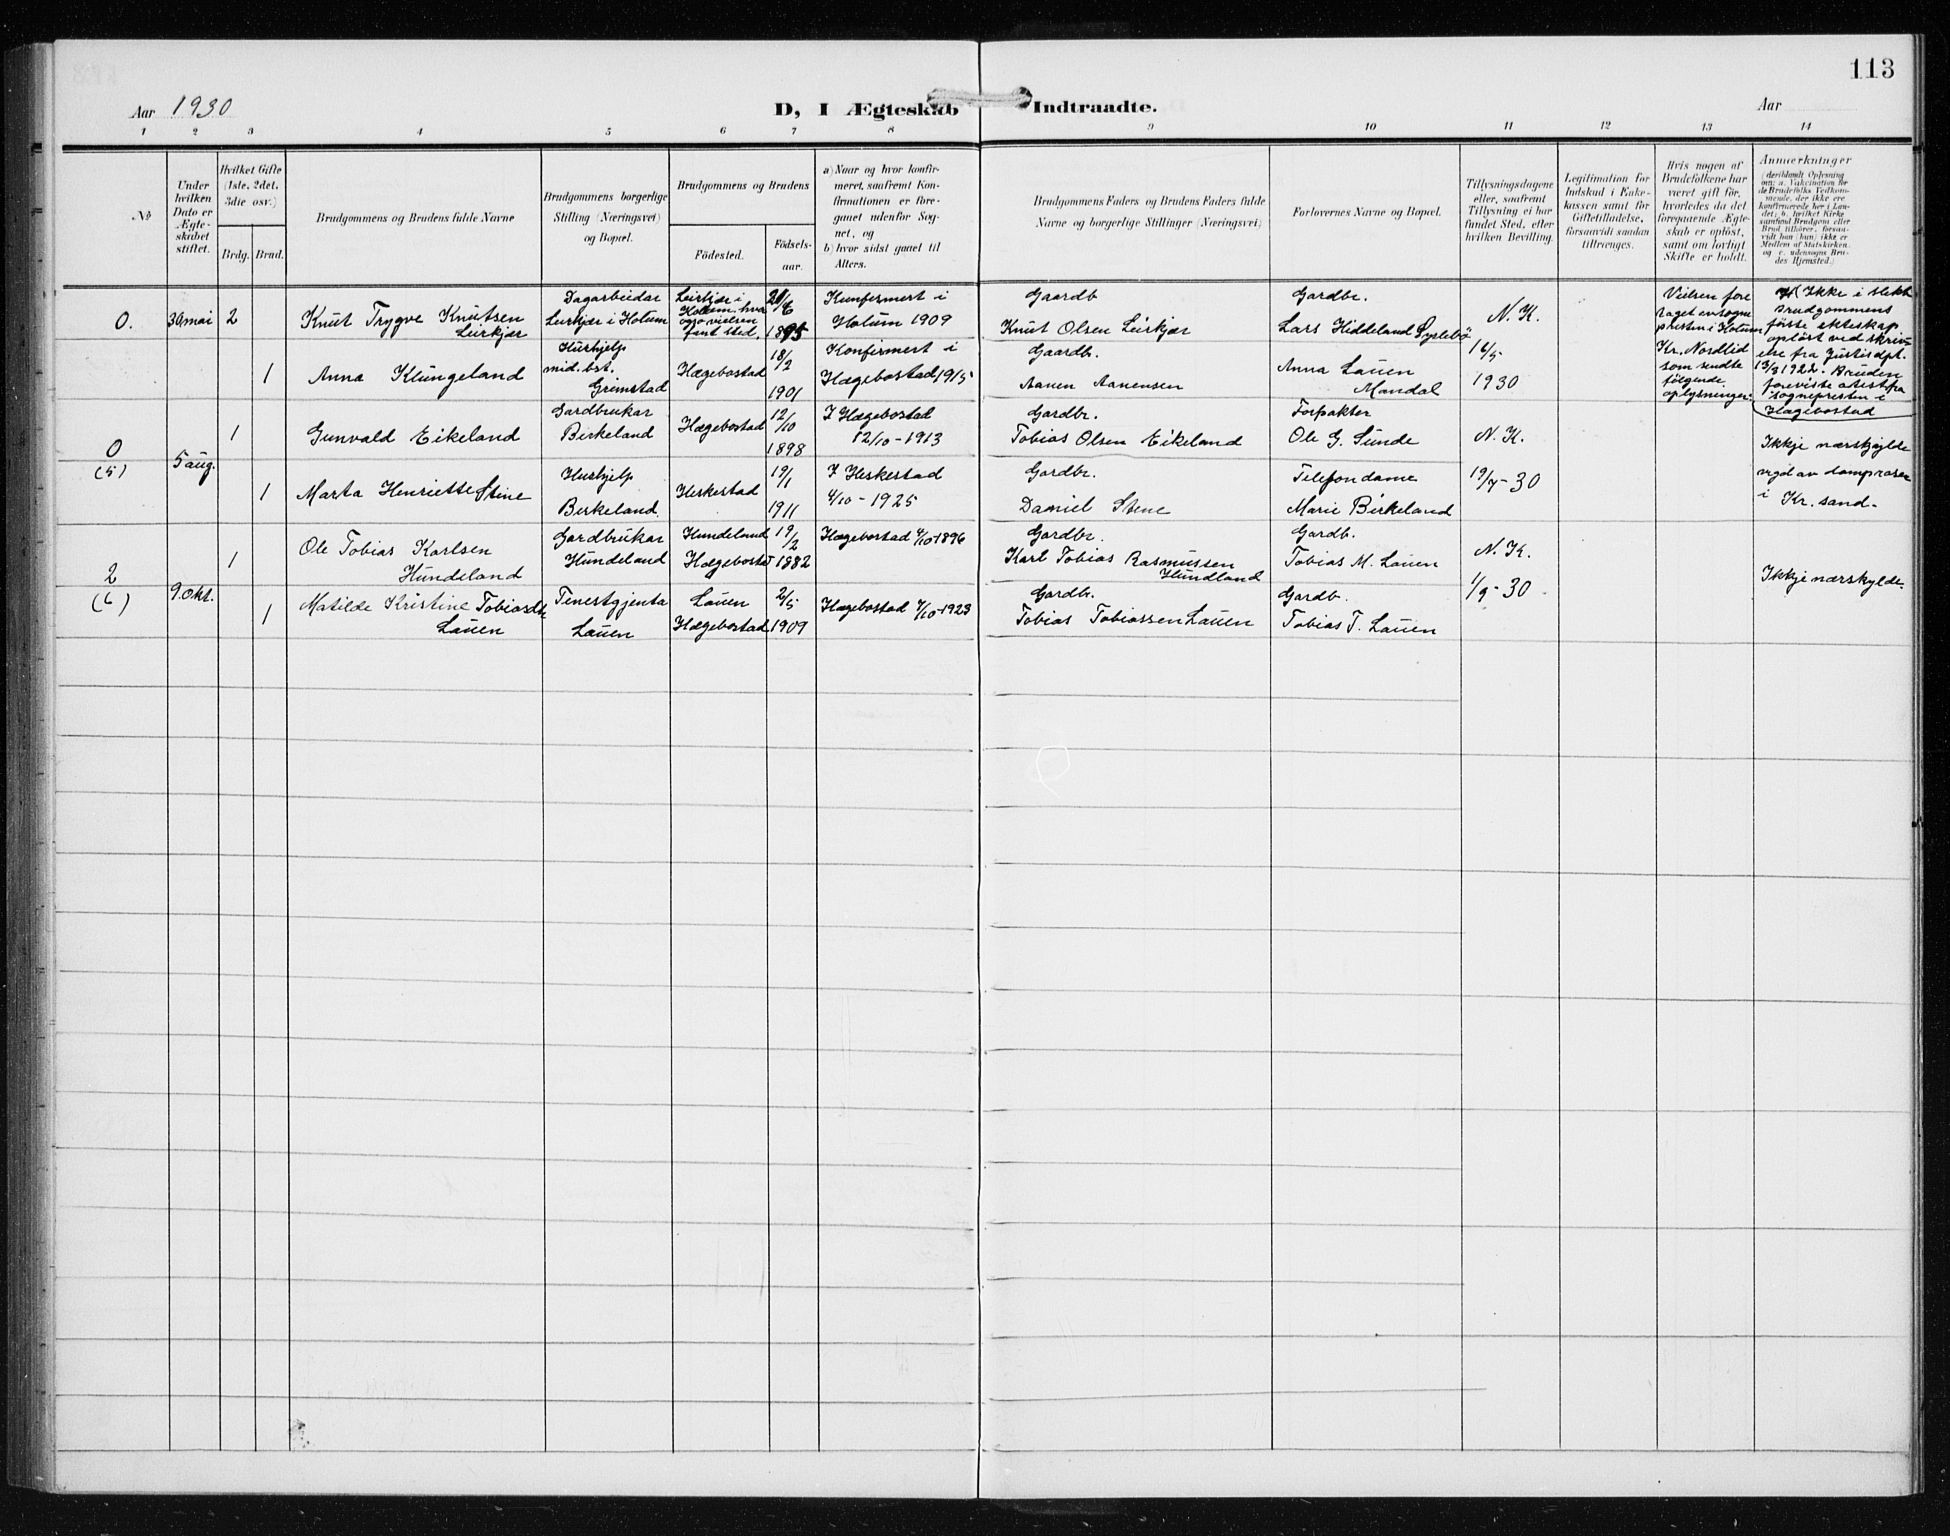 113
Aar 1930
D, I Ægteskab Indtraadte.
Aar
1 2 3 4 5 6 7 8 9 10 11 12 13 14
No
Under hvilken Dato er Ægteskabet stiftet.
Hvilket Gifte (1ste, 2det, 3die osv.)
Brdg. Brud.
Brudgommens og Brudens fulde Navne
Brudgommens borgerlige Stilling (Næringsvei) og Bopæl.
Brudgommens og Brudens
Födested.
Födselsaar.
a) Naar og hvor konfirmeret, saafremt Konfirmationen er foregaaet udenfor Sognet, og
b) hvor sidst gaaet til Alters.
Brudgommens Faders og Brudens Faders fulde Navne og borgerlige Stillinger (Næringsvei)
Forlovernes Navne og Bopæl.
Tillysningsdagene eller, saafremt Tillysning ei har fundet Sted, efter hvilken Bevilling.
Legitimation for Indskud i Enkekassen samt for Giftetilladelse, forsaavidt saadan tiltrænges.
Hvis nogen af Brudefolkene har været gift för, hvorledes da det foregaaende Ægteskab er oplöst, samt om lovligt Skifte er holdt.
Anmerkninger
(deriblandt Oplysning om: a. Vakcination for de Brudefolks Vedkommende, der ikke ere konfirmerede her i Landet; b. hvilket Kirkesamfund Brudgom eller Brud tilhörer, forsaavidt han (hun) ikke er Medlem af Statskirken, og c. udensogns Brudes Hjemsted.)
0. 30 mai 2
Knut Trygve Knutsen
Leirkjær
Dagarbeidar
Leirkjær i Holum
Leirkjær i
Holum. hvor
også vielsen
fant sted.
1895
Konfirmert i
Holum 1909
Gaardb
Knut Olsen Leirkjær
Gardbr.
Lars Hiddeland Syslebö
N. K.
16/5
1930
Vielsen fore
taget av sogne
presten i Holum
Kr. Nordlid
som sendte
følgende
oplysninger:
Ikke i slekt
Brudgommens
første ekteskap
oplöst ved skriv
else fra Justisdpt.
13/3 1922. Bruden
foreviste attest fra
sognepresten i
Hægebostad
1
Anna Klungeland
Hushjelp
mid. bst.
Grimstad
Hægebostad
18/2
1901
Konfirmert i
Hægebostad, 1915
Gaardb.
Aanen Aanensen
Anna Lauen
Mandal
0
(5)
5 aug.
1
Gunvald Eikeland
Gardbrukar
Birkeland
Hægebostad
12/10
1898
I Hægebostad
12/10 - 1913
Gardbr.
Tobias Olsen Eikeland
Forpakter
Ole G. Sunde
N. K.
19/7 - 30
Ikkje nærskylde
vigd av domprosen
i Kr. sand.
1
Marta Henriette Stine
Hushjelp
Birkeland.
Heskestad
19/1
1911
I Heskestad
4/10 - 1925
Gardbr.
Daniel Stene
Telefondame
Marie Birkeland
2
(6)
9. okt.
1
Ole Tobias Karlsen
Hundeland
Gardbrukar
Hundeland
Hundeland
Hægebostd
19/2
1882
Hægebostad 4/10 1896
Gardbr.
Karl Tobias Rasmussen
Hundland
Gardb.
Tobias M. Lauen
N. K.
1/9 - 30
Ikkje nærskylde.
1
Matilde Kristine Tobiasdtr
Lauen
Tenestgjenta
Lauen
Lauen
Hægebostad
2/5
1909
Hægebostad 7/10 - 1923
Gardbr.
Tobias Tobiassen Lauen
Gardb.
Tobias T. Lauen